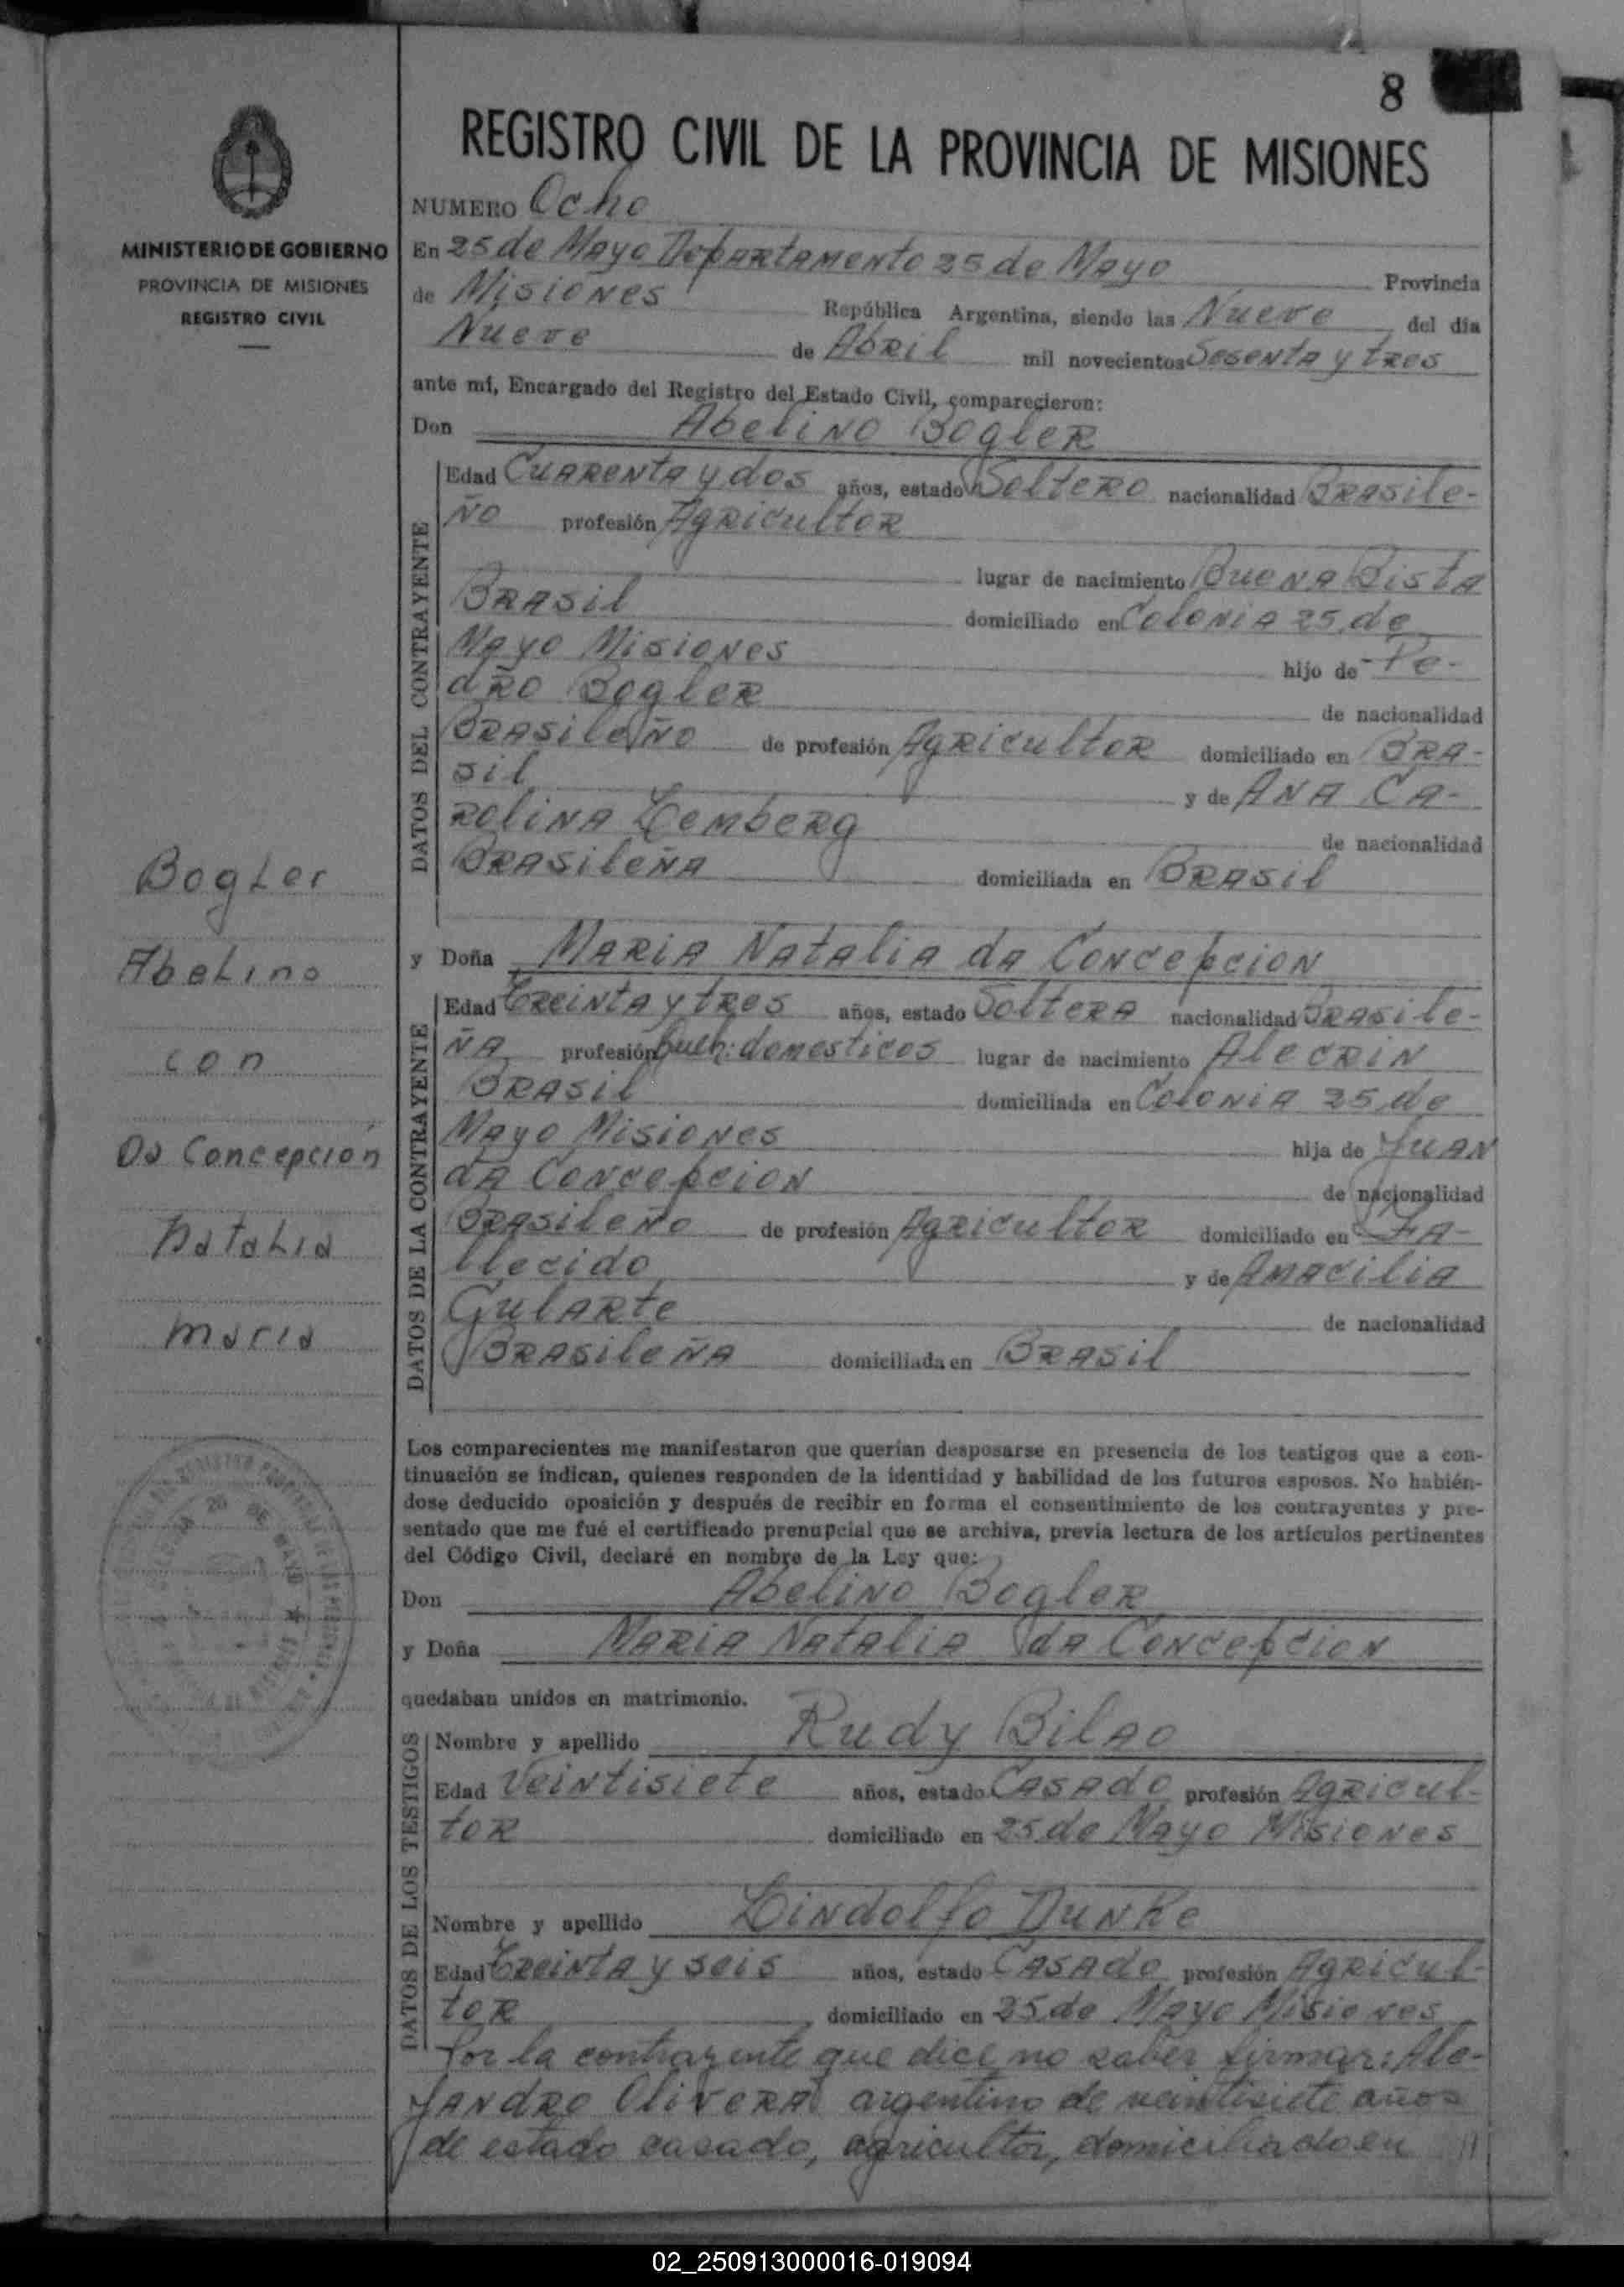 8
REGISTRO CIVIL DE LA PROVINCIA DE MISIONES
MINISTERIO DE GOBIERNO
PROVINCIA DE MISIONES
REGISTRO CIVIL
NUMERO Ocho
En 25 de Mayo Departamento 25 de Mayo Provincia
de Misiones República Argentina, siendo las Nueve del día
Nueve de Abril mil novecientos Sesenta y tres
ante mí, Encargado del Registro del Estado Civil, comparecieron:
Don Abelino Bogler
DATOS DEL CONTRAYENTE
Edad Cuarenta y dos años, estado Soltero nacionalidad Brasile-
ño profesión Agricultor
lugar de nacimiento Buena Bista
Brasil domiciliado en Colonia 25 de
Mayo Misiones hijo de Pe-
dro Bogler de nacionalidad
Brasileño de profesión Agricultor domiciliado en Bra-
sil y de Ana Ca-
rolina Lemberg de nacionalidad
Brasileña domiciliada en Brasil
y Doña Maria Natalia da Concepcion
DATOS DE LA CONTRAYENTE
Edad Treinta y tres años, estado Soltera nacionalidad Brasile-
ña profesión domesticos lugar de nacimiento Alecrin
Brasil domiciliada en Colonia 25 de
Mayo Misiones hija de Juan
da Concepcion de nacionalidad
Brasileño de profesión Agricultor domiciliado en Fa-
llecido y de Amacilia
Gularte de nacionalidad
Brasileña domiciliada en Brasil
Los comparecientes me manifestaron que querían desposarse en presencia de los testigos que a con-
tinuación se indican, quienes responden de la identidad y habilidad de los futuros esposos. No habién-
dose deducido oposición y después de recibir en forma el consentimiento de los contrayentes y pre-
sentado que me fué el certificado prenupcial que se archiva, previa lectura de los artículos pertinentes
del Código Civil, declaré en nombre de la Ley que:
Don Abelino Bogler
y Doña Maria Natalia da Concepcion
quedaban unidos en matrimonio.
DATOS DE LOS TESTIGOS
Nombre y apellido Rudy Bilao
Edad Veintisiete años, estado Casado profesión Agricul-
tor domiciliado en 25 de Mayo Misiones
Nombre y apellido Lindolfo Dunke
Edad Treinta y seis años, estado Casado profesión Agricul-
tor domiciliado en 25 de Mayo Misiones
Por la contrayente que dice no saber firmar: Ale-
jandro Olivera argentino de veintisiete años
de estado casado, agricultor, domiciliado en //
Bogler
Abelino
con
Da Concepción
Natalia
Maria
02_250913000016-019094